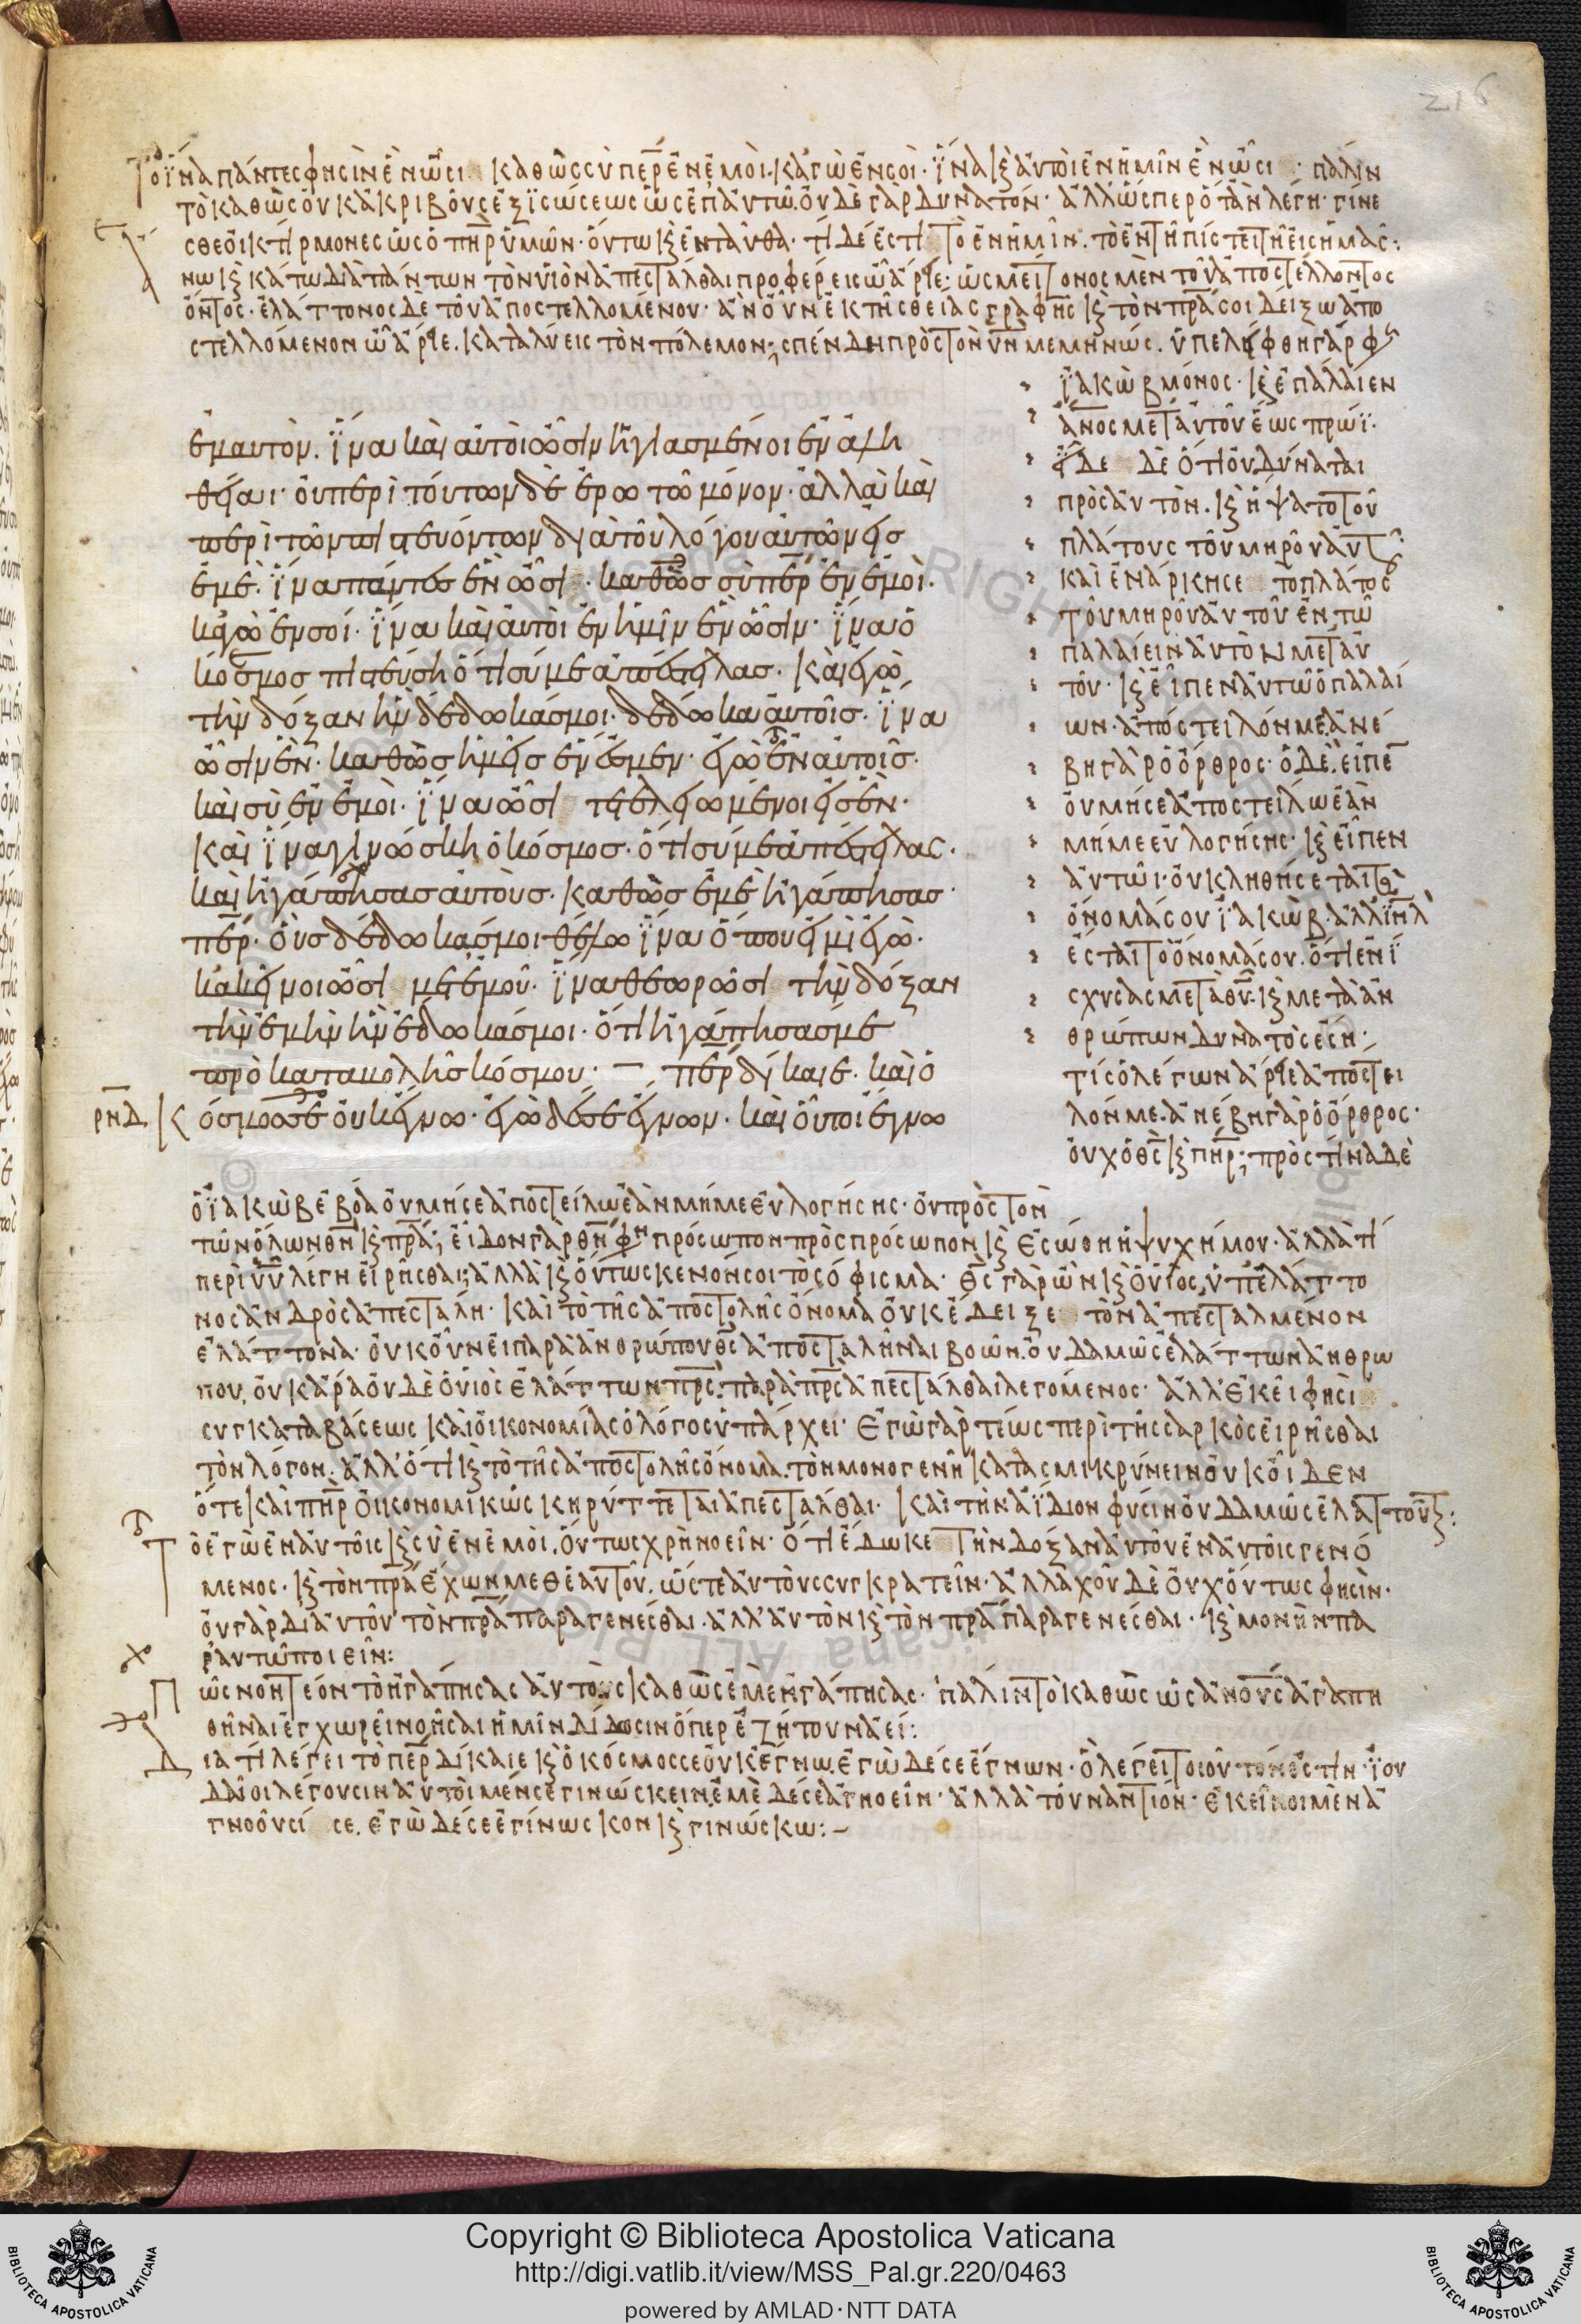 216
Το ἵνα πάντες φησὶν ἓν ὦσι καθὼς σὺ περ ἐν ἐμοὶ. κἀγὼ ἐν σοὶ. ἵνα καὶ αὐτοὶ ἐν ἡμῖν ἓν ὦσι : πάλιν
τὸ καθὼς οὐκ ἀκριβοῦς ἐξισώσεως ὡς ἐπ αὐτῶ. οὐδὲ γὰρ δυνατόν. ἀλλ ὥσπερ ὅταν λέγη. γίνε
σθε οἰκτίρμονες ὡς ὁ πηρ ὑμῶν. οὕτω καὶ ἐνταῦθα. τί δέ ἐστι το ἐν ἡμῖν. τὸ ἐν τῆ πίστει τῆ εἰς ἡμᾶς:
νω καὶ κάτω διὰ πάντων τὸν υἱὸν ἀπεστάλθαι προφέρεις ὦ ἄρειε. ὡς μείζονος μὲν τοῦ ἀποστέλλοντος
ὄντος. ἐλάττονος δε τοῦ ἀποστελλομένου. ἂν οὖν ἐκ τῆς θείας γραφῆς καὶ τὸν πρα σοι δείξω ἀπο
στελλόμενον ὦ ἄρειε. καταλύεις τὸν πόλεμον; σπένδη πρὸς τὸν υν μεμηνώς. ὑπελήφθη γάρ φ
ἰακὼβ μόνος. καὶ ἐπάλαιεν
ανος μετ αὐτοῦ ἕως πρωί.
δὲ ὅτι οὐ δύναται
πρὸς αὐτὸν. καὶ ἥψατο τοῦ
πλάτους τοῦ μηροῦ αὐτ
καὶ ἐνάρκησε το πλάτος
τοῦ μηροῦ αὐτοῦ ἐν τῶ
παλαίειν αὐτὸν μετ αὐ
τοῦ. καὶ εἶπεν αὐτῶ ὁ παλαί
ων. ἀπόστειλόν με. ἀνέ
βη γὰρ ὁ ὄρθρος. ὁ δὲ εἶπε
οὐ μή σε ἀποστείλω ἐὰν
μή με εὐλογήσης. καὶ εἶπεν
αὐτῶι. οὐ κληθήσεται
ὄνομά σου ἰακὼβ. ἀλλ ιηλ
ἔσται το ὄνομά σου. ὅτι ἐνί
σχυσας μετὰ θυ. καὶ μετὰ ἀν
θρώπων δυνατὸς ἔση.
τίς ὁ λέγων ἄρειε ἀπόστει
λόν με. ἀνέβη γὰρ ὁ ὄρθρος.
οὐχ ὁ θς καὶ πηρ; πρὸς τίνα δὲ
ἐμαυτὸν. ἵνα καὶ αὐτοὶ ὦσιν ἡγιασμένοι ἐν ἀλη
θείαι. οὐ περὶ τούτων δὲ ἐρωτῶ μόνον. ἀλλὰ καὶ
περὶ τῶν πιστευόντων διὰ τοῦ λόγου αὐτῶν εἰς
ἐμέ. ἵνα πάντες ἓν ὦσι. καθὼς σὺ περ ἐν ἐμοὶ.
κἀγὼ ἐν σοί. ἵνα καὶ αὐτοὶ ἐν ἡμῖν ἓν ὦσιν. ἵνα ὁ
κόσμος πιστεύση ὅτι σύ με ἀπέστειλας. Καὶ ἐγὼ
τὴν δόξαν ἣν δέδωκάς μοι. δέδωκα αὐτοῖς. ἵνα
ὦσιν ἓν. καθὼς ἡμεῖς ἕν ἐσμεν. ἐγὼ ἐν αὐτοῖς.
καὶ σὺ ἐν ἐμοὶ. ἵνα ὦσι τετελειωμένοι εἰς ἓν.
Καὶ ἵνα γινώσκη ὁ κόσμος. ὅτι σύ με ἀπέστειλας.
καὶ ἠγάπησας αὐτοὺς. καθὼς ἐμὲ ἠγάπησας.
περ. οὓς δέδωκάς μοι θέλω ἵνα ὅπου εἰμὶ ἐγὼ.
κἀκεῖνοι ὦσι μετ ἐμοῦ. ἵνα θεωρῶσι τὴν δόξαν
τὴν ἐμὴν ἣν ἔδωκάς μοι. ὅτι ἠγάπησάς με
πρὸ καταβολῆς κόσμου. – περ δίκαιε. καὶ ὁ
ρνδ Κόσμος σε οὐκ ἔγνω. ἐγὼ δέ σε ἔγνων. καὶ οὗτοι ἔγνω
ὁ ἰακὼβ ἐβόα οὐ μή σε ἀποστείλω ἐὰν μή με εὐλογήσης. οὐ πρὸς τὸν
τῶν ὅλων θν καὶ πρα; εἶδον γὰρ θν φη πρόσωπον πρὸς πρόσωπον καὶ ἐσώθη ἡ ψυχή μου. ἀλλὰ τί
περὶ υυ λέγη εἰρῆσθαι; ἀλλὰ καὶ οὕτως κενόν σοι τὸ σόφισμα. θς γὰρ ὢν καὶ οὗτος, ὑπ ἐλάττο
νος ἀνδρὸς ἀπεστάλη. καὶ τὸ τῆς ἀποστολῆς ὄνομα οὐκ ἔδειξε τὸν ἀπεσταλμένον
ἐλάττονα. οὐκοῦν εἰ παρὰ ἀνθρώπου θς ἀποσταλῆναι βοῶν. οὐδαμῶς ἐλάττων ἀνθρώ
που, οὐκ ἄρα οὐδὲ ὁ υἱὸς ἐλάττων πρς. παρὰ πρς ἀπεστάλθαι λεγόμενος. ἀλλ' ἐκεῖ φησὶ
συγκαταβάσεως καὶ οἰκονομίας ὁ λόγος ὑπάρχει. Ἐγὼ γὰρ τέως περὶ τῆς σαρκὸς εἰρῆσθαι
τὸν λόγον. ἀλλ' ὅτι καὶ τὸ τῆς ἀποστολῆς ὄνομα. τὸν μονογενῆ κατασμικρύνειν οὐκ οἶδεν
ὅτε καὶ πηρ οἰκονομικῶς κηρύττεται ἀπεστάλθαι. καὶ τὴν ἀΐδιον φύσιν οὐδαμῶς ἐλαττοῦται:
Τὸ ἐγὼ ἐν αὐτοῖς καὶ σὺ ἐν ἐμοὶ. οὕτως χρὴ νοεῖν. ὅτι ἔδωκε τὴν δόξαν αὐτοῦ ἐν αὐτοῖς γενό
μενος. καὶ τὸν πρα ἔχων μεθ ἑαυτοῦ. ὥστε αὐτοὺς συγκρατεῖν. ἀλλαχοῦ δὲ οὐχ οὕτως φησὶν.
οὐ γὰρ δι αὐτοῦ τὸν πρα παραγενέσθαι. ἀλλ' αὐτὸν καὶ τὸν πρα παραγενέσθαι. καὶ μονὴν πα
ρ αὐτῶ ποιεῖν:
Πῶς νοητέον τὸ ἠγάπησας αὐτοὺς καθὼς ἐμὲ ἠγάπησας. πάλιν τὸ καθὼς ὡς ανους ἀγαπη
θῆναι ἐγχωρεῖ νοῆσαι ἡμῖν δίδωσιν ὅπερ ἐζήτουν ἀεί:
Διατί λέγει τὸ περ δίκαιε καὶ ὁ κόσμος σε οὐκ ἔγνω. ἐγὼ δέ σε ἔγνων. ὃ λέγει τοιοῦτόν ἐστιν. ἰου
δαῖοι λέγουσιν αὐτοὶ μέν σε γινώσκειν. ἐμὲ δέ σε ἀγνοεῖν. ἀλλὰ τοὐναντίον. ἐκεῖνοι μὲν ἀ
γνοοῦσί σε. ἐγὼ δέ σε ἐγίνωσκον καὶ γινώσκω: –
Copyright © Biblioteca Apostolica Vaticana
http://digi.vatlib.it/view/MSS_Pal.gr.220/0463
powered by AMLAD·NTT DATA
BIBLIOTECA APOSTOLICA VATICANA
BIBLIOTECA APOSTOLICA VATICANA